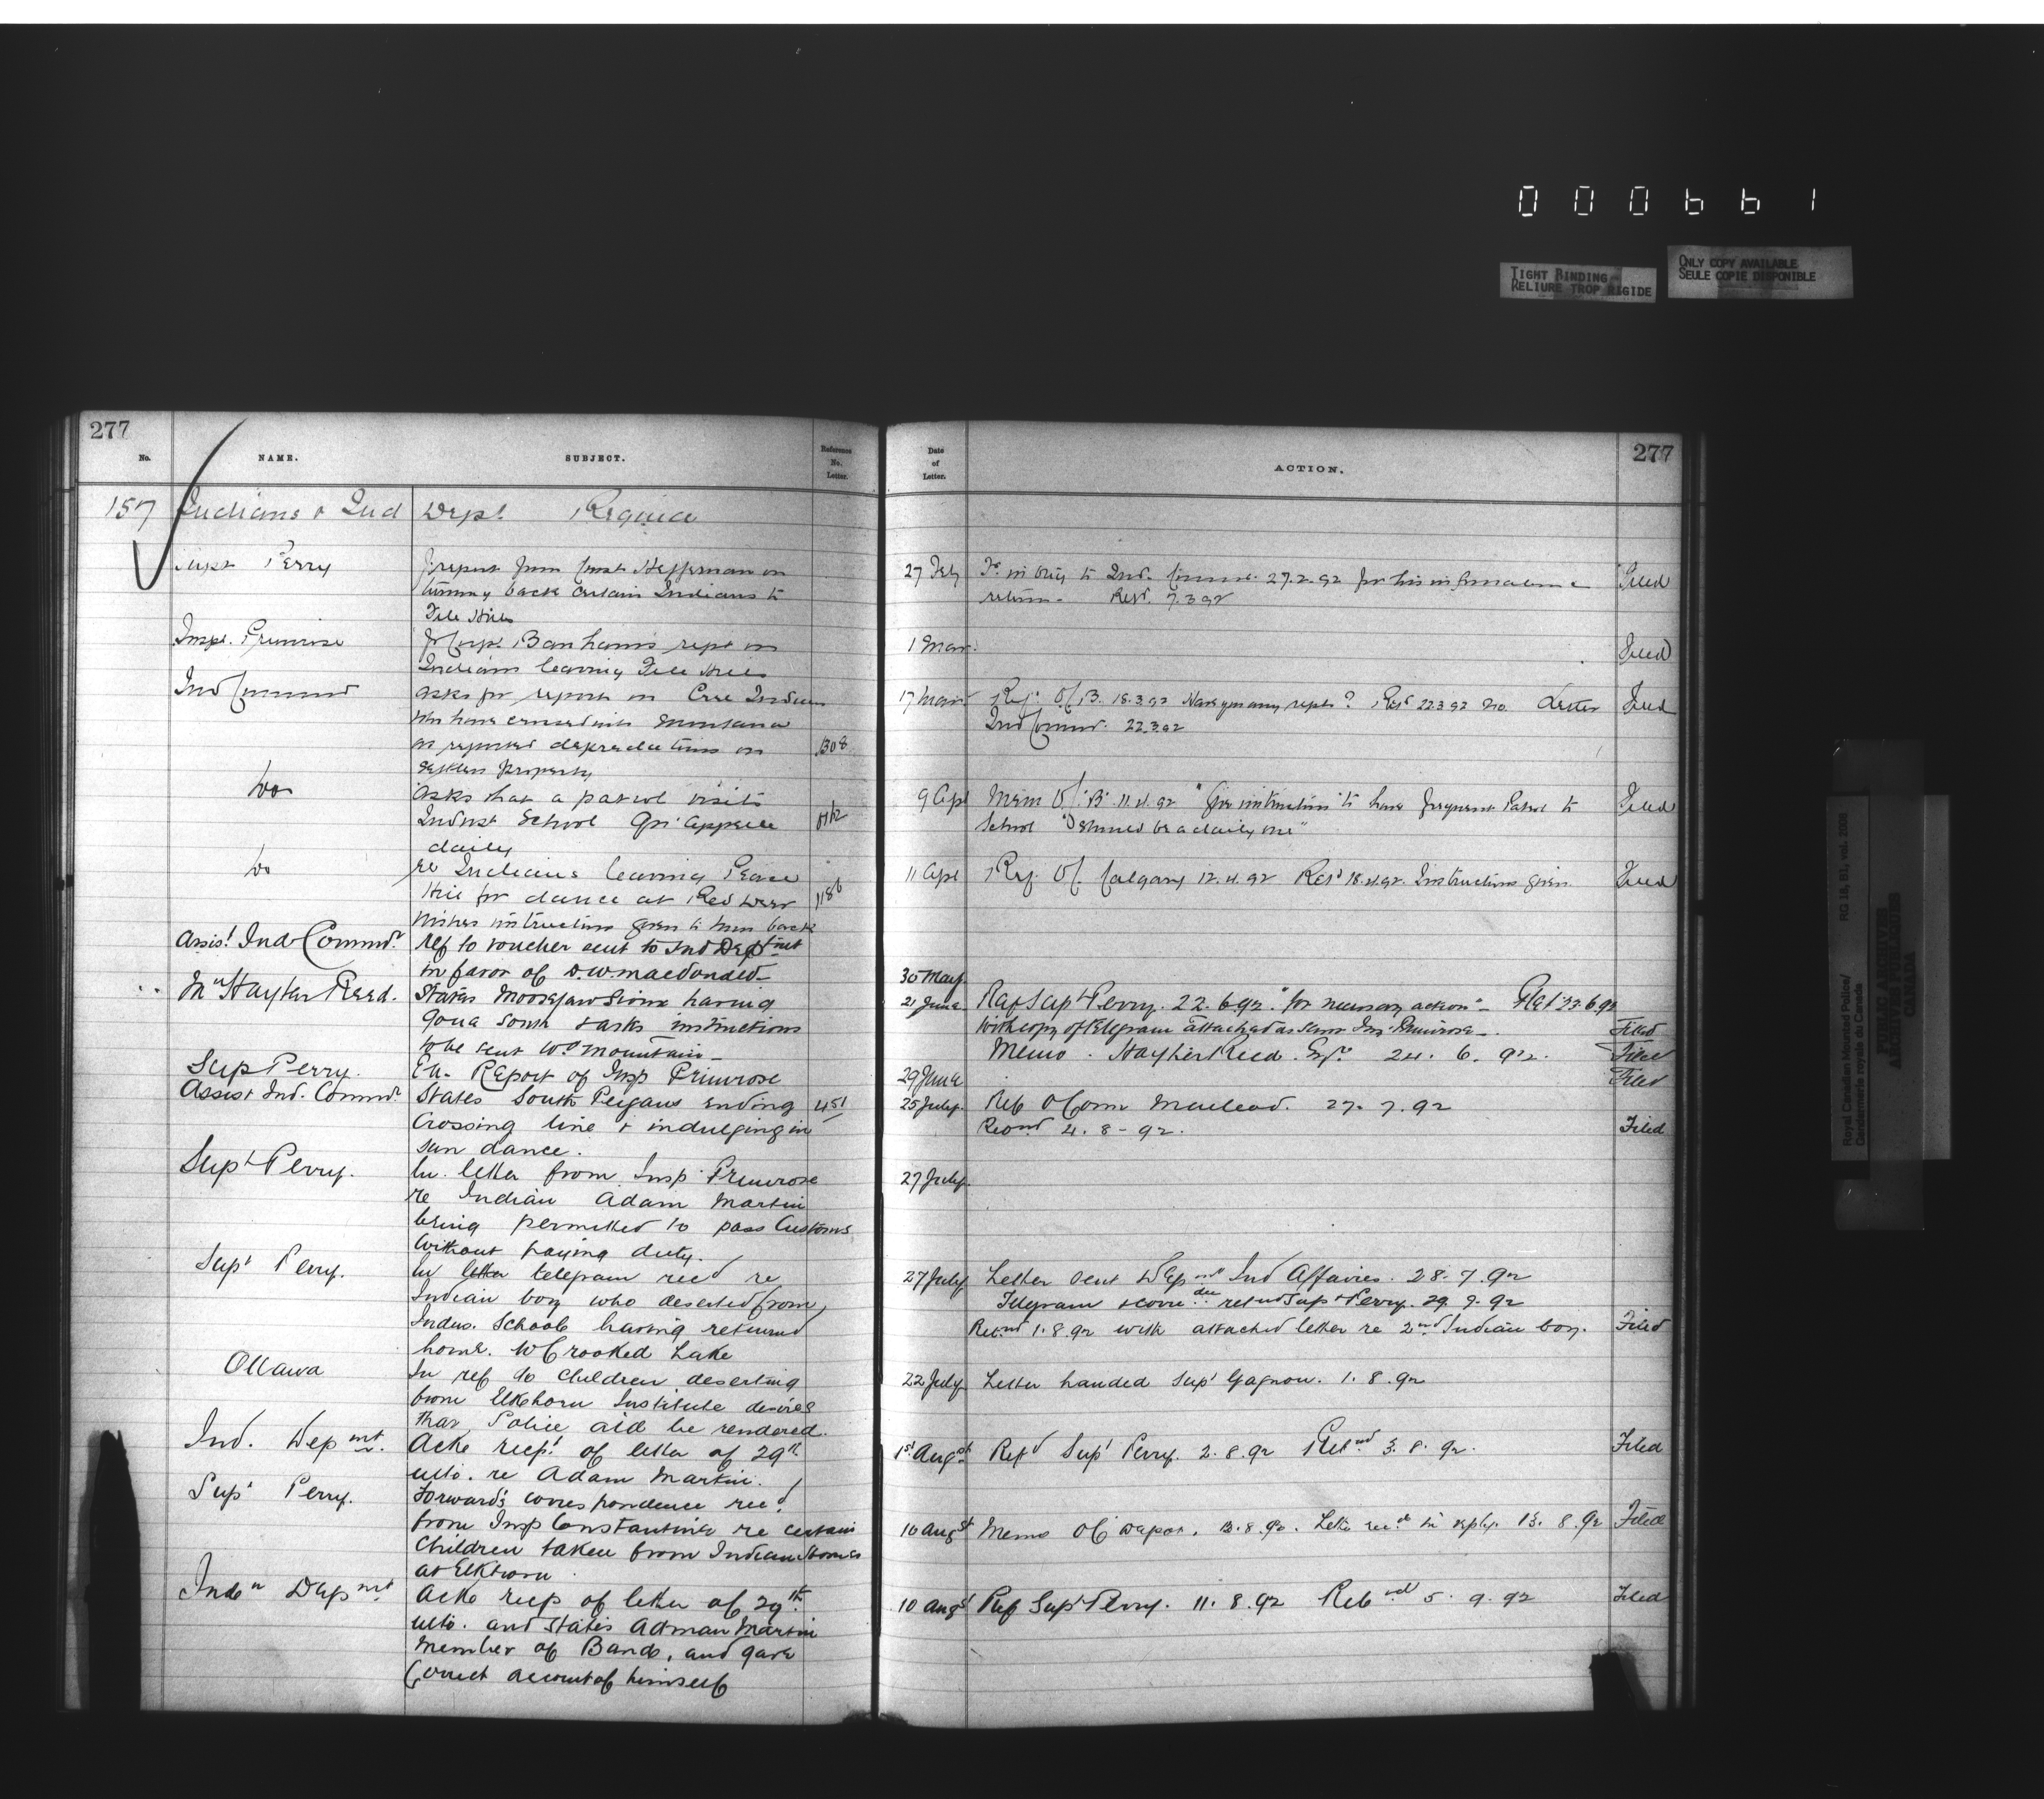 000661
TIGHT BINDING
RELIURE TROP RIGIDE
ONLY COPY AVAILABLE
SEULE COPIE DISPONIBLE
277
No.
NAME.
SUBJECT.
Reference
No.
Letter.
157 Indians & Ind Dept. Regina
Supt Perry
report from Const Heffernan on
turning back certain Indians to
File Hills
Inspr. Primrose
Corpl Banhams rept on
Indians leaving File Hills
Ind Commr
asks for report on Cree Indians
who have crossed into Montana
as reported depredations on 1308
settlers property
Do
asks that a patrol visits
Indust School Qu'Appelle
daily
Do
re Indians leaving Pease
Hill for dance at Red Deer 1186
Wishes instruction given to turn back
Assist. Ind Commr
ref to voucher sent to Ind Deptmt
in favor of D.W. Macdonald
Mr Hayter Reed.
States Moosejaw Sioux having
gone South & asks instructions
to be sent Wd Mountain
Sup Perry.
En. Report of Insp Primrose
Assist Ind. Commr
States South Peigans ending 451
Crossing line & indulging in
sun dance.
Supt Perry.
En. letter from Insp Primrose
re Indian Adam Martin
being permitted to pass Customs
without paying duty.
Supt Perry.
En letter telegram recd re
Indian boy who deserted from
Indus. School having returned
home. W Crooked Lake
Ottawa
In ref to Children deserting
from Elkhorn Institute desires
that Police aid be rendered.
Ind. Depmt.
Ackn recpt of letter of 29th
ulto. re Adam Martin.
Supt Perry.
Forwards correspondence recd
from Insp Constantine re certain
Children taken from Indian Homes
at Elkhorn
Indn Depmt
Ackn recp of letter of 29th
ulto. and States Adman Martin
Member of Band, and gave
Correct account of himself
277
Date
of
Letter.
ACTION.
27 Feby in orig to Ind. Commr. 27.2.92 for his information &
return. Retd. 7.3.92 Filed
1 Mar. Filed
17 Mar Ref. O.C. B. 18.3.92 Have you any repts? Retd 22.3.92 no. Letter Filed
Ind Commr. 22.3.92
9 Apl Mem O.C. "B" 11.4.92 "Give instructions to have frequent Patrol to Filed
School should be a daily one"
11 Apl Ref. O.C. Calgary 12.4.92 Retd 18.4.92. Instructions given Filed
30 May
21 June Ref Supt Perry. 22.6.92 "for necessary action" Retd 23.6.92
With copy of telegram attached as sent Ins. Primrose. Filed
Memo. Hayter Reed. Esqr. 24. 6. 92. Filed
29 June Filed
25 July. Ref O Com Macleod. 27. 7. 92
4. 8 - 92. Filed
27 July.
27 July Letter sent Depmt Ind Affaires. 28. 7. 92
Telegram Supt Perry. 29. 7. 92
Retnd 1.8.92 with attached letter re 2nd Indian boy. Filed
22 July Letter handed Supt Gagnon. 1. 8. 92
1st Augst Refd Supt Perry. 2. 8. 92 Retnd 3. 8. 92. Filed
10 Augst Memo O.C. Depot. 13. 8. 92. 13. 8. 92 Filed
10 Augst Ref Supt Perry. 11. 8. 92 5. 9. 92 Filed
Royal Canadian Mounted Police/ RG 18, B1, vol. 2008
Gendarmerie royale du Canada
PUBLIC ARCHIVES
ARCHIVES PUBLIQUES
CANADA